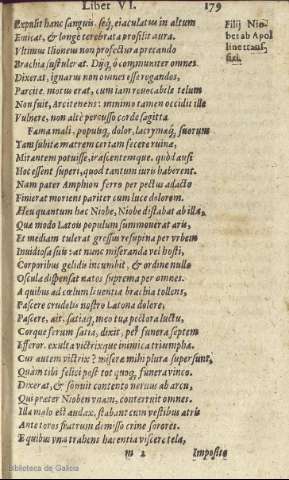 Liber VI. 179
Expulit hanc sanguis, seq́, eiaculatus in altum
Emicat, & longè terebrata prosilit aura.
Vltimus Ilioneus non profectura precando
Brachia sustulerat. Dijq́, ô communiter omnes
Dixerat, ignarus non omnes esse rogandos,
Parcite. motus erat, cum iam reuocabile telum
Non fuit, Arcitenens: minimo tamen occidit ille
Vulnere, non altè percusso corde sagitta
Fama mali, populiq́, dolor, lacrymæq́, suorum
Tam subitæ matrem certam fecere ruinæ,
Mirantem potuisse, irascentemque. quòd ausi
Hoc essent superi, quod tantum iuris haberent.
Nam pater Amphion ferro per pectus adacto
Finierat moriens pariter cum luce dolorem.
Heu quantum hæc Niobe, Niobe distabat ab illa,
Quæ modò Latois populum summouerat aris,
Et mediam tulerat gressus resupina per vrbem
Inuidiosa suis: at nunc miseranda vel hosti,
Corporibus gelidis incumbit, & ordine nullo
Oscula dispensat natos suprema per omnes.
A quibus ad cœlum liuentia brachia tollens,
Pascere crudelis nostro Latona dolore,
Pascere, ait, satiaq́, meo tua pectora luctu,
Corque ferum satia, dixit, per funera septem
Efferor. exulta victrixque inimica triumpha.
Cur autem victrix? miseræ mihi plura supersunt,
Quàm tibi felici post tot quoq, funera vinco.
Dixerat, & sonuit contento neruus ab arcu,
Qui præter Nioben vnam, conterruit omnes.
Illa malo est audax. stabant cum vestibus atris
Ante toros fratrum demisso crine sorores.
E quibus vna trahens hærentia viscere tela,
m 2 Imposito
Filij Nio-
bes ab Apol
line trans-
fixi.
Biblioteca de Galicia